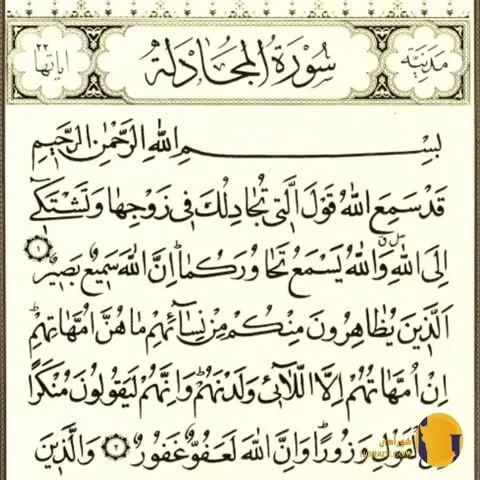 مدنیة سُورَةُ المُجَادلَة ایاتها ٢٢
بِسْمِ اللهِ الرَّحْمٰنِ الرَّحیمِ
قَدْ سَمِعَ اللهُ قَوْلَ الَّتی تُجَادِلُكَ فی زَوْجِهَا وَتَشْتَكی
اِلَی اللهِ وَاللهُ یَسْمَعُ تَحَاوُرَكُمَا اِنَّ اللهَ سَمیعٌ بَصیرٌ ١
اَلَّذینَ یُظَاهِرُونَ مِنْكُمْ مِنْ نِسَائِهِمْ مَا هُنَّ اُمَّهَاتِهِمْ
اِنْ اُمَّهَاتُهُمْ اِلَّا اللَّائی وَلَدْنَهُمْ وَاِنَّهُمْ لَیَقُولُونَ مُنْكَرًا
الْقَوْلِ وَزُورًا وَاِنَّ اللهَ لَعَفُوٌّ غَفُورٌ ٢ وَالَّذینَ